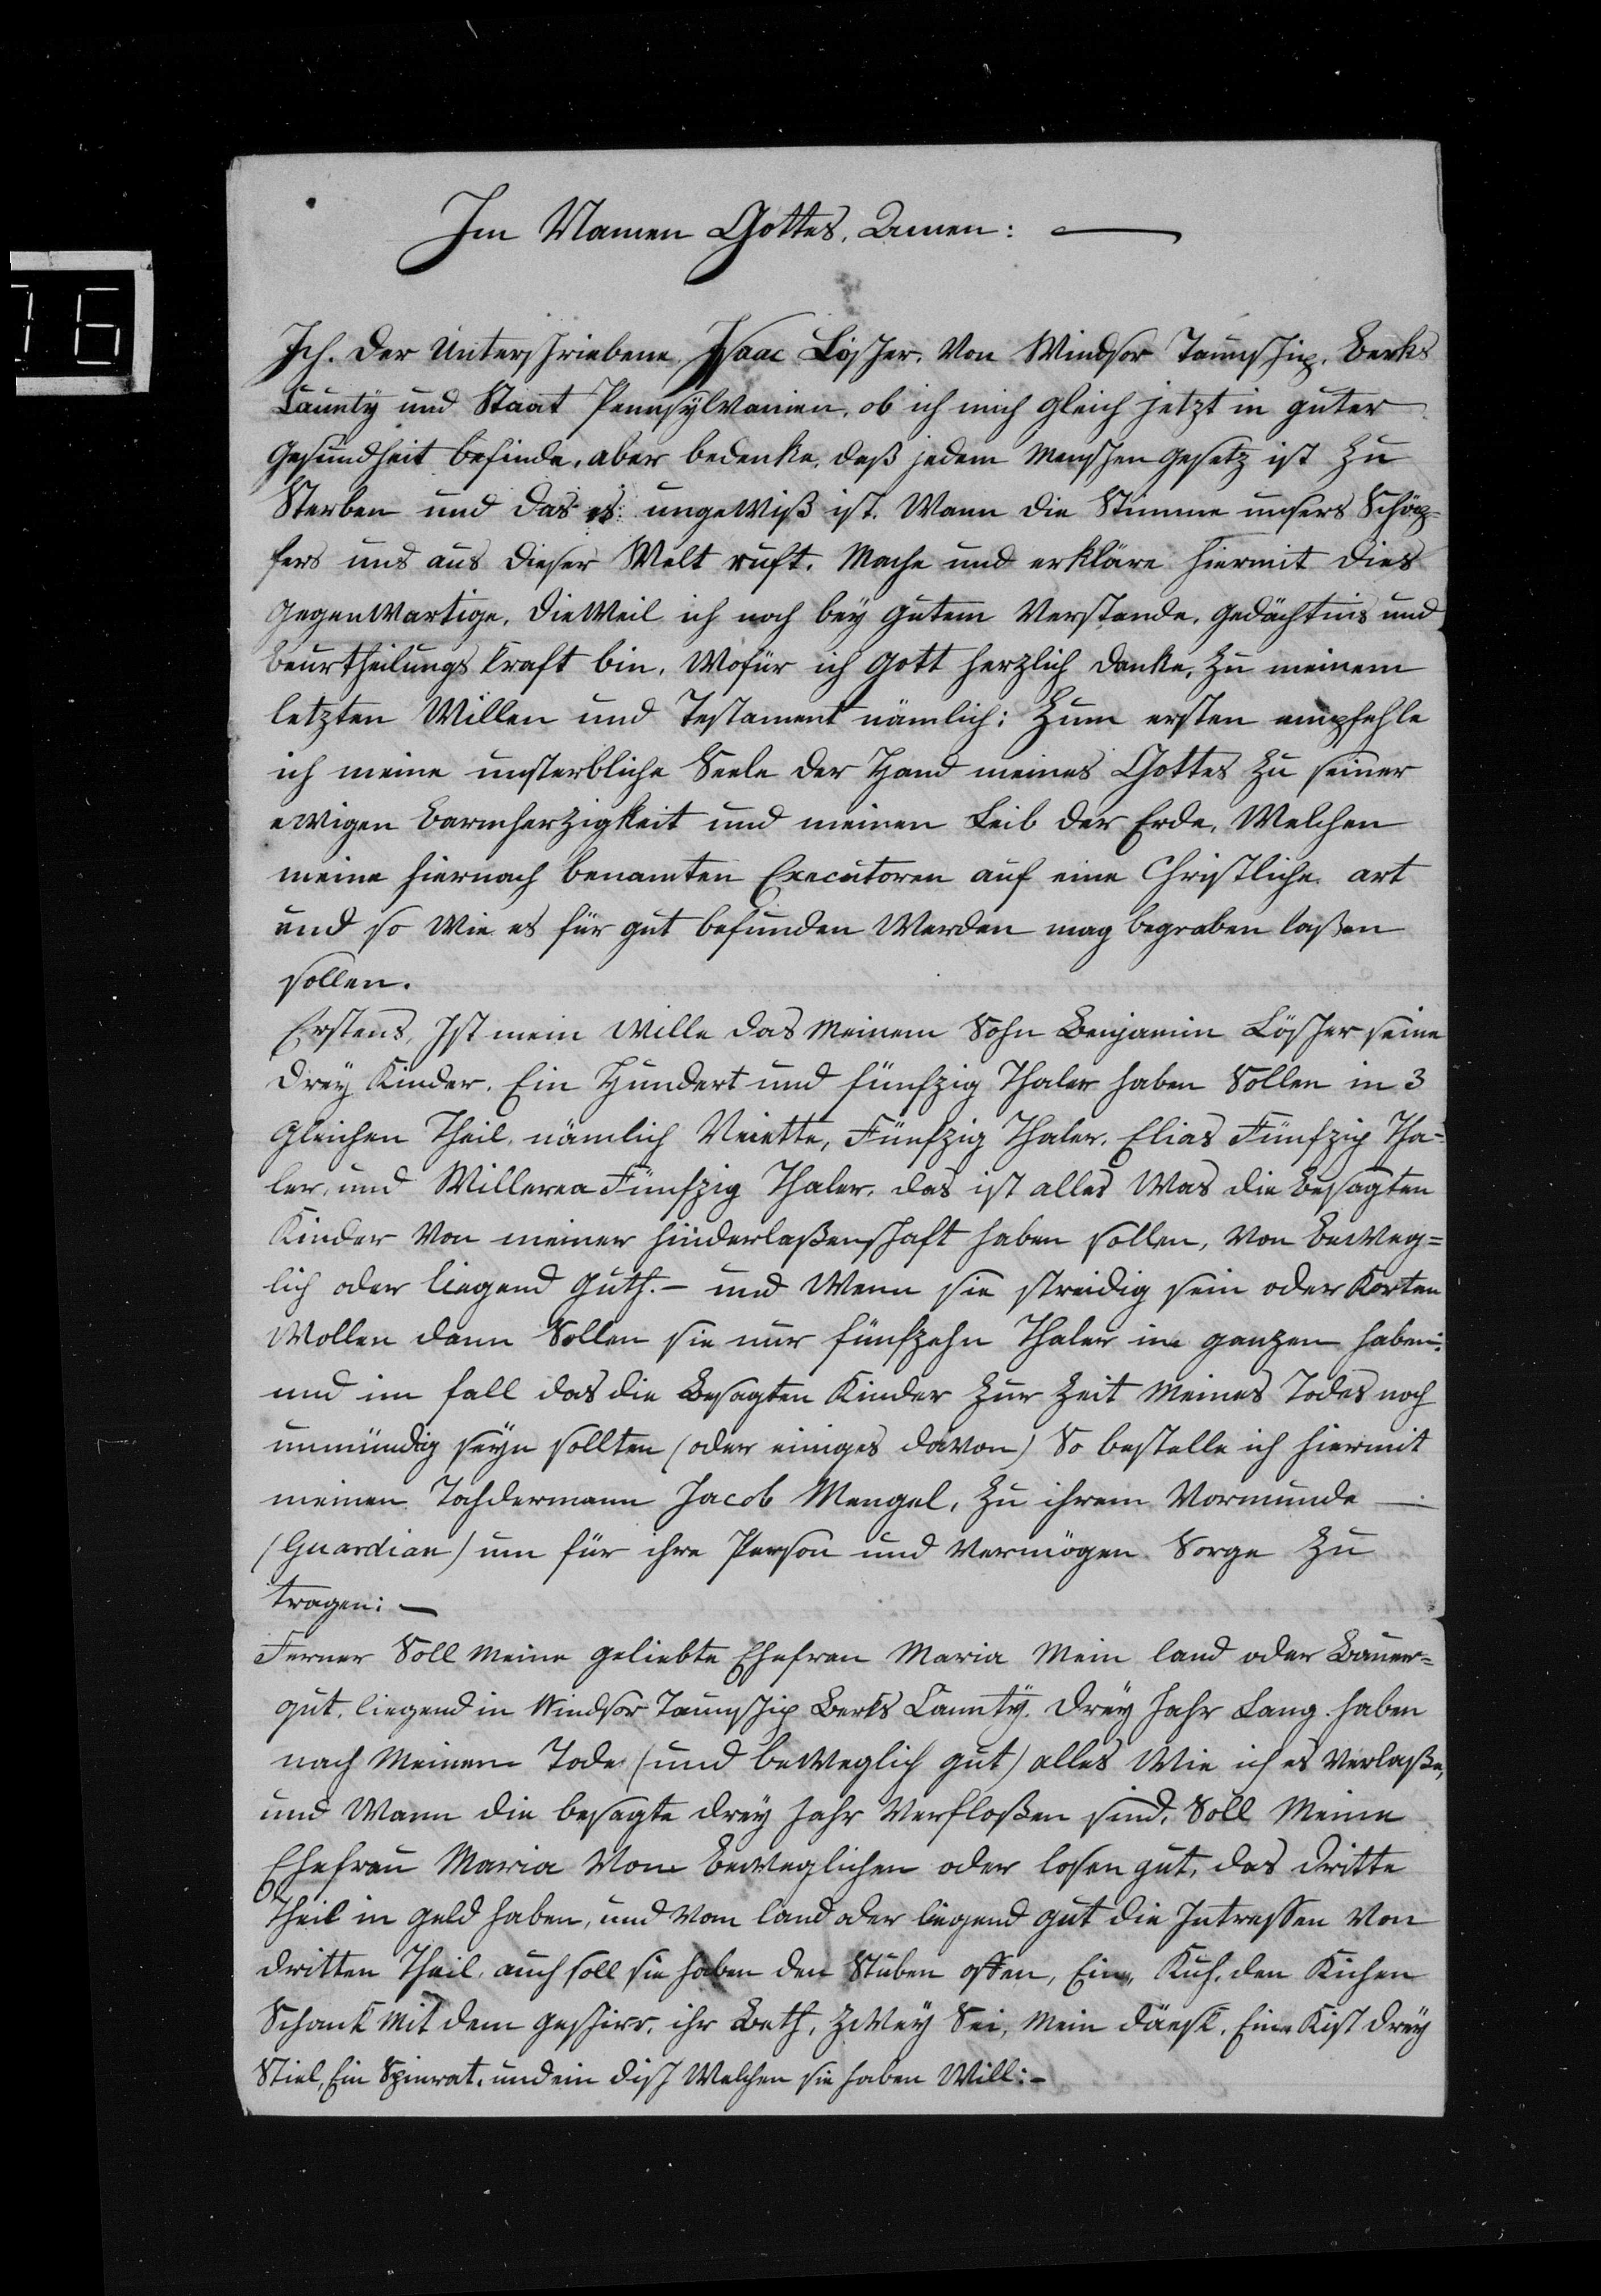 16
Im Namen Gottes. Amen: —
Ich. der Unterschriebene Isaac Löscher. Von Windsor Taunschip. Berks
Caunty und Staat Pennsylvanien. ob ich mich gleich jetzt in guter
Gesundheit befinde, aber bedenke. daß jedem Menschen gesetz ist zu
Sterben und das es: ungewiß ist. Wann die Stimme unsers Schöp=
fers uns aus dieser Welt ruft. Mache und erkläre hiermit dies
gegenwartige. dieweil ich noch bey gutem Verstande. gedächtnis und
beurtheilungs kraft bin. Wofür ich Gott herzlich danke. zu meinem
letzten Willen und Testament nämlich: Zum ersten empfehle
ich meine unsterbliche Seele der Hand meines Gottes zu seiner
ewigen barmherzigkeit und meinen Leib der Erde. Welchen
meine hiernach benamten Executoren auf eine Christliche art
und so wie es für gut befunden Werden mag begraben laßen
sollen.
Erstens, Ist mein Wille das meinem Sohn Benjamin Löscher seine
drey Kinder. Ein Hundert und fünfzig Thaler haben Sollen in 3
gleichen Theil. nämlich Veiette, Fünfzig Thaler. Elias Fünfzig Tha=
ler, und Willerea Fünfzig Thaler. das ist alles Was die besagten
Kinder Von meiner hinderlaßenschaft haben sollen, Von beweg=
lich oder liegend Guth.— und Wenn sie streidig sein oder Korten
Wollen dann Sollen sie nur fünfzehn Thaler im ganzen haben:
und im fall das die Besagten Kinder zur Zeit meines Todes noch
unmündig seyn sollten (oder einiges davon) So bestelle ich hiermit
meinen Tochdermann Jacob Mengel, zu ihrem Vormunde —.
(Guardian) um für ihre Person und Vermögen Sorge zu
tragen: —
Ferner Soll meine geliebte Ehefrau Maria Mein land oder Bauer=
gut. liegend in Windsor Taunschip Berks Caunty. drey Jahr Lang. haben
nach Meinem Tode (und beweglich gut) alles Wie ich es Verlaße,
und Wann die besagte drey Jahr Verfloßen sind. Soll Meine
Ehefrau Maria Vom beweglichen oder losen gut, das dritte
Theil in geld haben, und Vom land oder liegend gut die Intressen Von
dritten Theil. auch soll sie haben den Stuben offen, Eine Kuh. den Kichen
Schank mit dem geschirr. ihr Beth, Zwey Sei, Mein däesk. Eine Kist drey
Stiel, Ein Spinrat. und ein disch Welchen sie haben Will:—